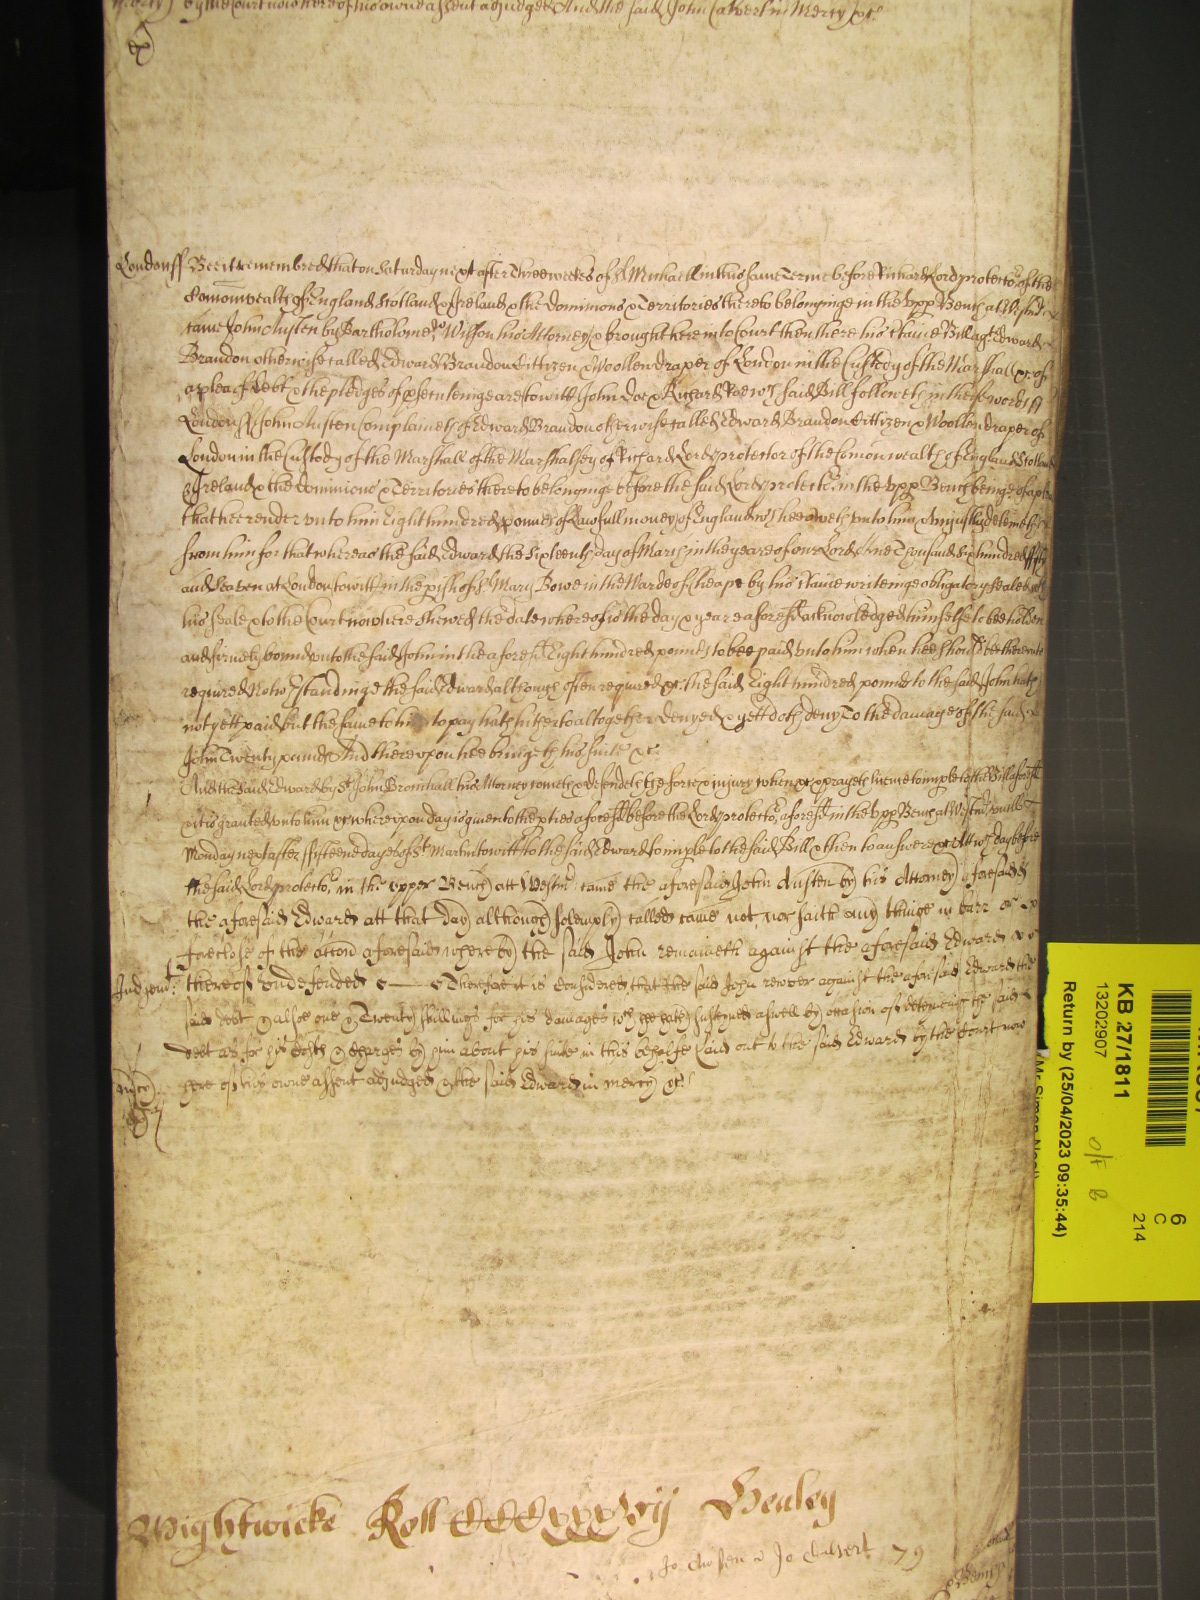 by the Court now here of his owne assent adjudged And the said John Calvert in Mercy &c
London ss Bee it remembred that on Saturday next after Three weekes of St Michaell in this same Terme before Richard Lord protector of the
Comonwealth of England Scotland & Ireland & the dominions & Territories thereto belonginge in the Upp Bench at Westmr
came John Austen by Bartholomew Wilson his Attorney & brought here into Court then there his certaine Bill agt Edward
Brandon otherwise called Edward Brandon Cittizen & Woollendraper of London in the Custody of the Marshall &c of
a plea of debt & the pledges of prsecuteinge are to witt John Doe & Richard Roe wch said Bill followeth in these words ss
London ss John Austen Complaineth of Edward Brandon otherwise called Edward Brandon Cittizen & Woollendraper of
London in the Custody of the Marshall of the Marshalsey of Richard Lord protector of the Comonwealth of England Scotland
& Ireland & the dominions & Territories thereto belonginge before the said Lord protector in the Upp Bench beinge of a plea
that hee render unto him Eight hundred pounds of Lawfull money of England wch hee oweth unto him & unjustly deteineth
from him for that whereas the said Edward the sixteenth day of March in the yeare of our Lord One Thousand Six hundred fifty
and Seaven at London to witt in the pish of St Mary Bowe in the Warde of Cheape by his certaine writeinge obligatory sealed with
his seale & to the Court now here shewed the date whereof is the day & yeare aforesd acknowledged himselfe to bee holden
and firmely bound unto the said John in the aforesd Eight hundred pounds to bee paid unto him when hee should bee thereunto
required Notwthstandinge the said Edward although often required &c the said Eight hundred pounds to the said John hath
not yett paid but the same to him to pay hath hitherto altogether denyed & yett doth deny To the damage of the said
John Twenty pounds And thereupon hee bringeth his suite &c
And the said Edward by St John Bromhall his Attorney cometh & defendeth the force & injury when &c & prayeth licence to imple to the Bill aforesd
& it is granted unto him &c whereupon day is given to the pties aforesd before the Lord protector aforesd in the Upp Bench at Westmr untill
Monday next after fifteene dayes of St Martin to witt to the said Edward to imple to the said Bill & then to answere &c Att wch day before
the said Lord protector in the Upper Bench att Westmr came the aforesaid John Austen by his Attorney aforesaid &
the aforesaid Edward att that day although solemply called came not nor saith any thinge in barr or
foreclose of the accon aforesaid whereby the said John remaineth against the aforesaid Edward
Judgmt thereof undefended Therefore it is Considered that the said John recover against the aforesaid Edward the
said debt & alsoe one & Twenty shillings for his damages wch he hath susteyned aswell by occasion of deteineing the said
debt as for his Costs & charges by him about his suite in this behalfe laid out to the said Edward by the Court now
mercy here of his owne assent adjudged & the said Edward in mercy &c
Wightwicke Roll CCCCxxxvij Henley
Jo Austen v Jo Calvert 79
KB 27/1811
13202907
Return by (25/04/2023 09:35:44)
O/F B
6
C
214